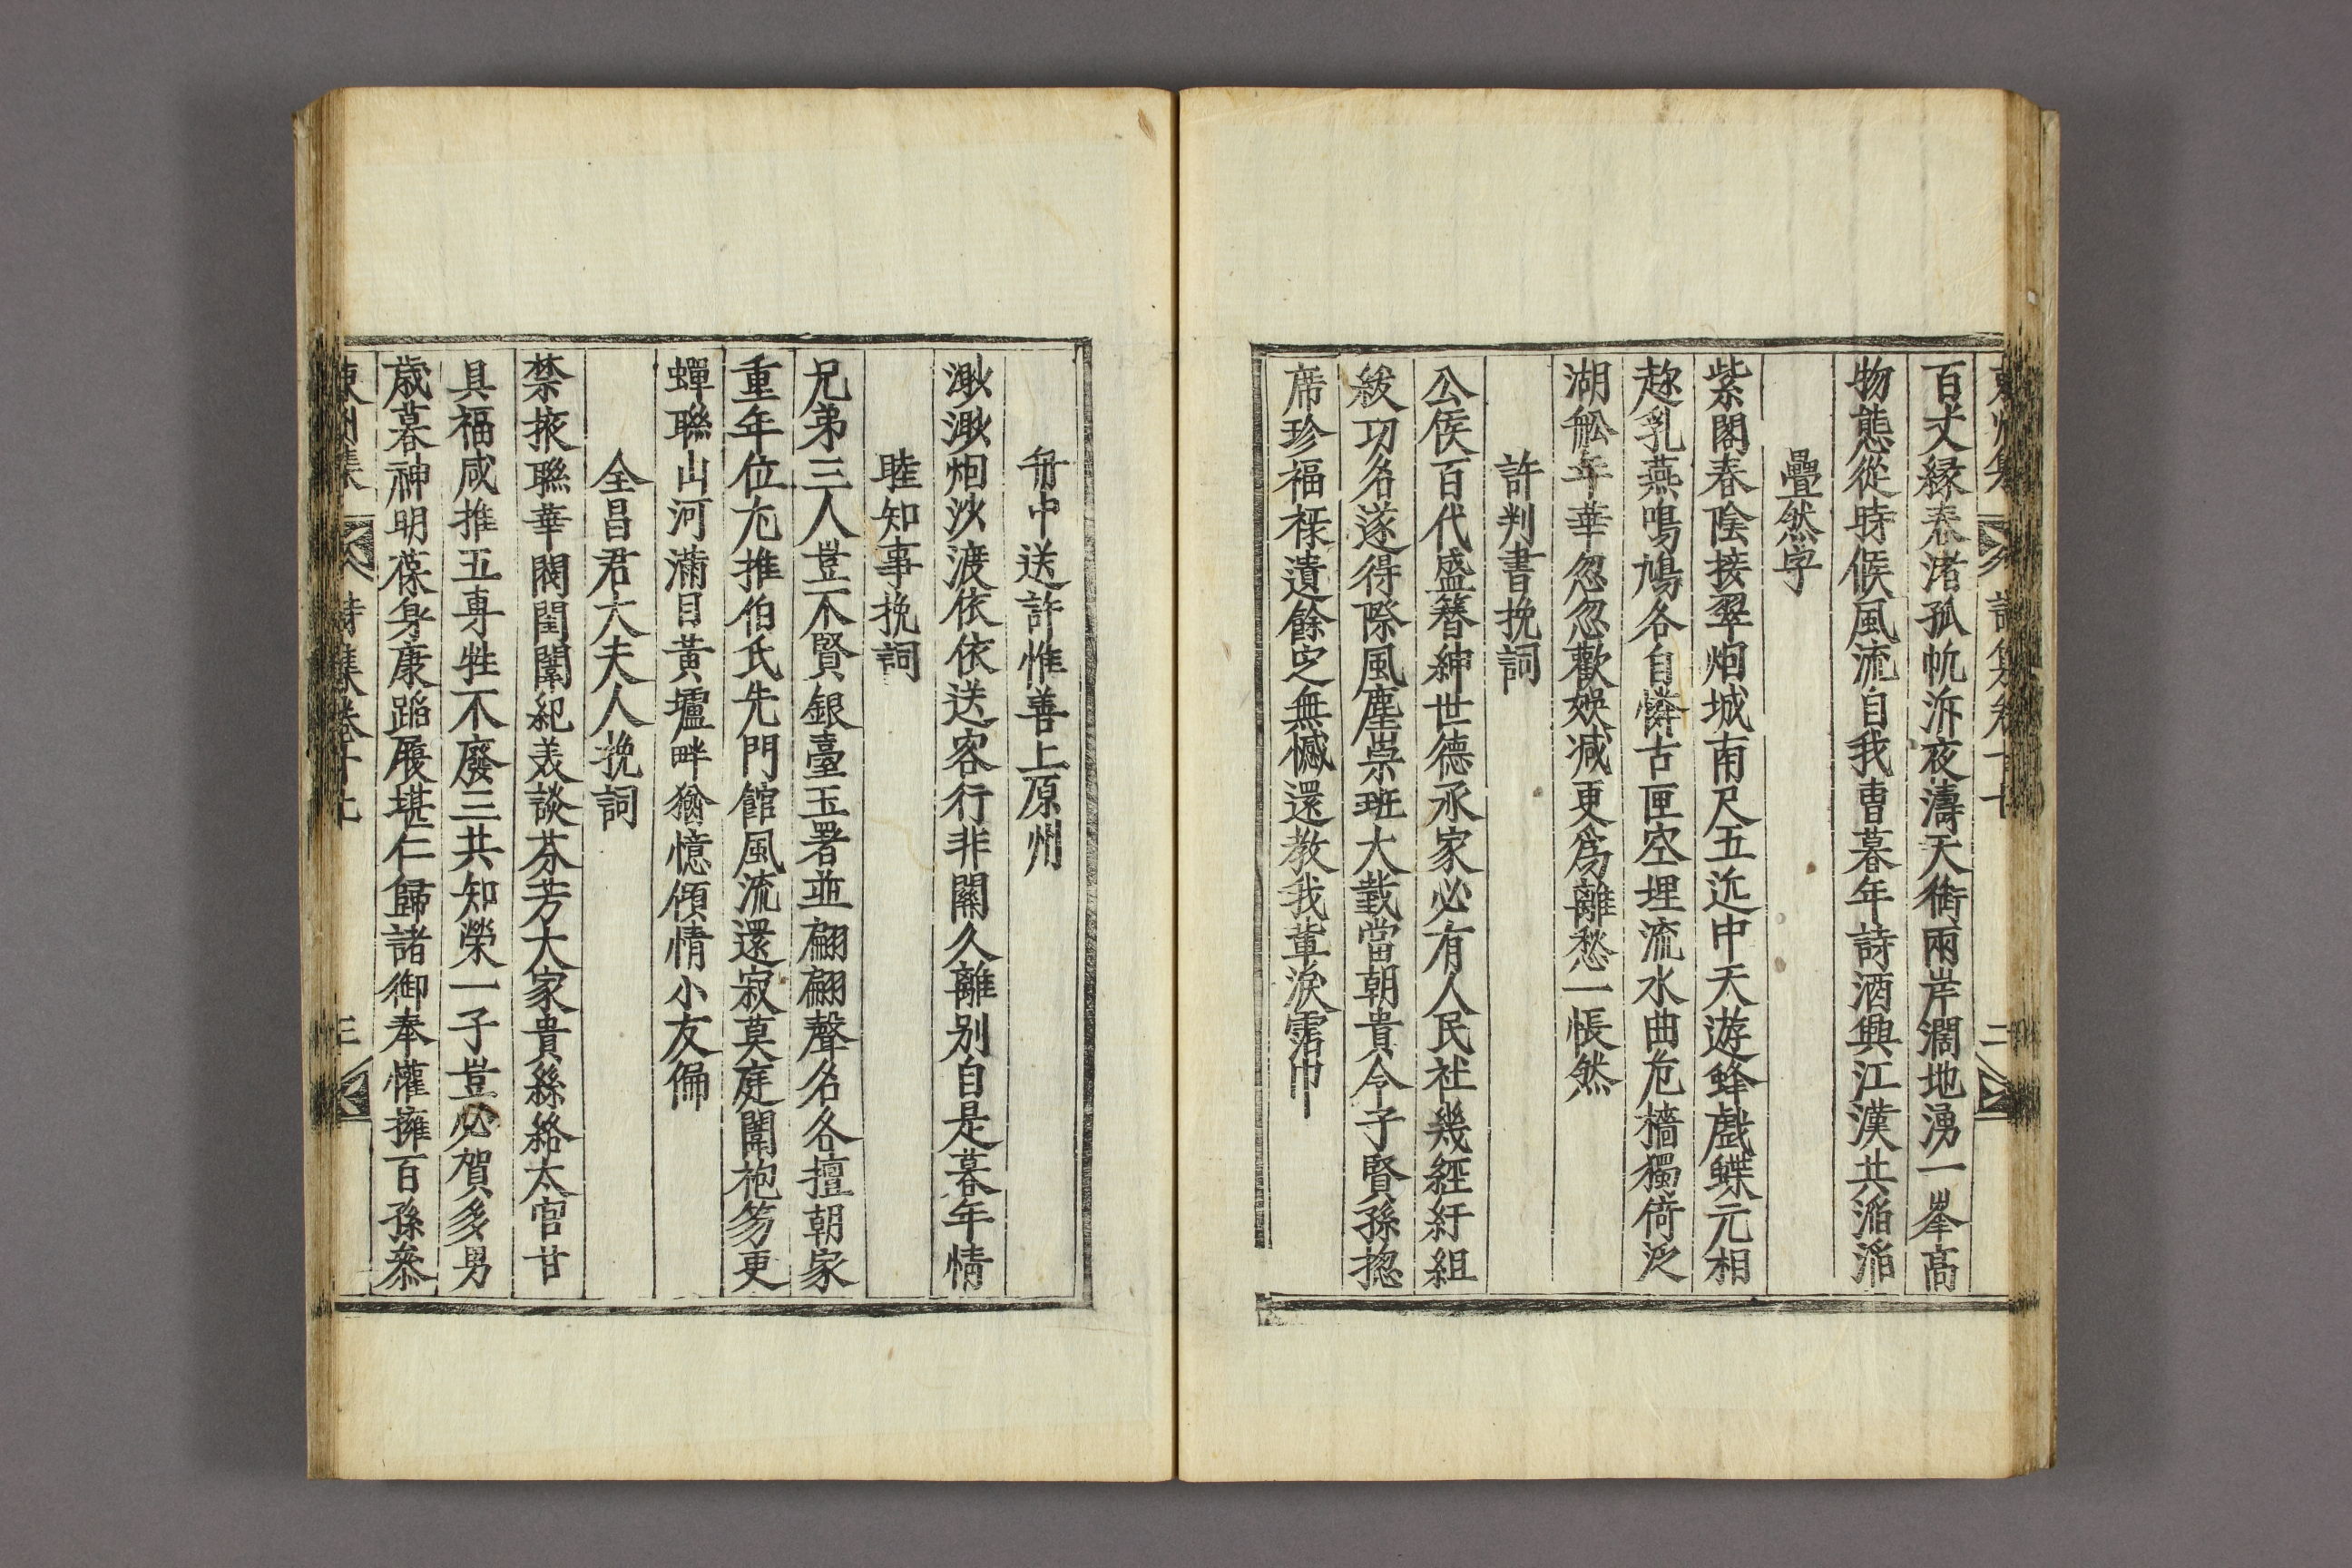 百丈緑春渚孤帆泝夜濤天衝兩岸濶地湧一峯高
物態從時候風流自我曹暮年詩酒興江漢共滔滔
疊然字
紫閣春陰接翠烟城南尺五近中天遊蜂戲蝶元相
趂乳燕鳴鳩各自憐古匣空埋流水曲危檣獨倚泛
湖舩年華忽忽歡娛减更爲離愁一悵然
許判書挽詞
公侯百代盛簪紳世德承家必有人民社幾經紆組
紱功名遂得際風塵崇班大耋當朝貴令子賢孫揔
席珍福祿遺餘定無憾還教我輩淚霑巾
舟中送許惟善上原州
渺渺烟沙渡依依送客行非關久離别自是暮年情
睦知事挽詞
兄弟三人豈不賢銀臺玉署並翩翩聲名各擅朝家
重年位尢推伯氏先門館風流還寂莫庭闈袍笏更
蟬聯山河滿目黃壚畔猶憶傾情小友偏
全昌君大夫人挽詞
禁掖聯華閥閨闈紀美談芬芳大家貴絲絡太官甘
具福咸推五専牲不廢三共知榮一子豈必賀多男
歲暮神明葆身康蹈履堪仁歸諸御奉懽擁百孫叅
東州集 詩集卷十七 三